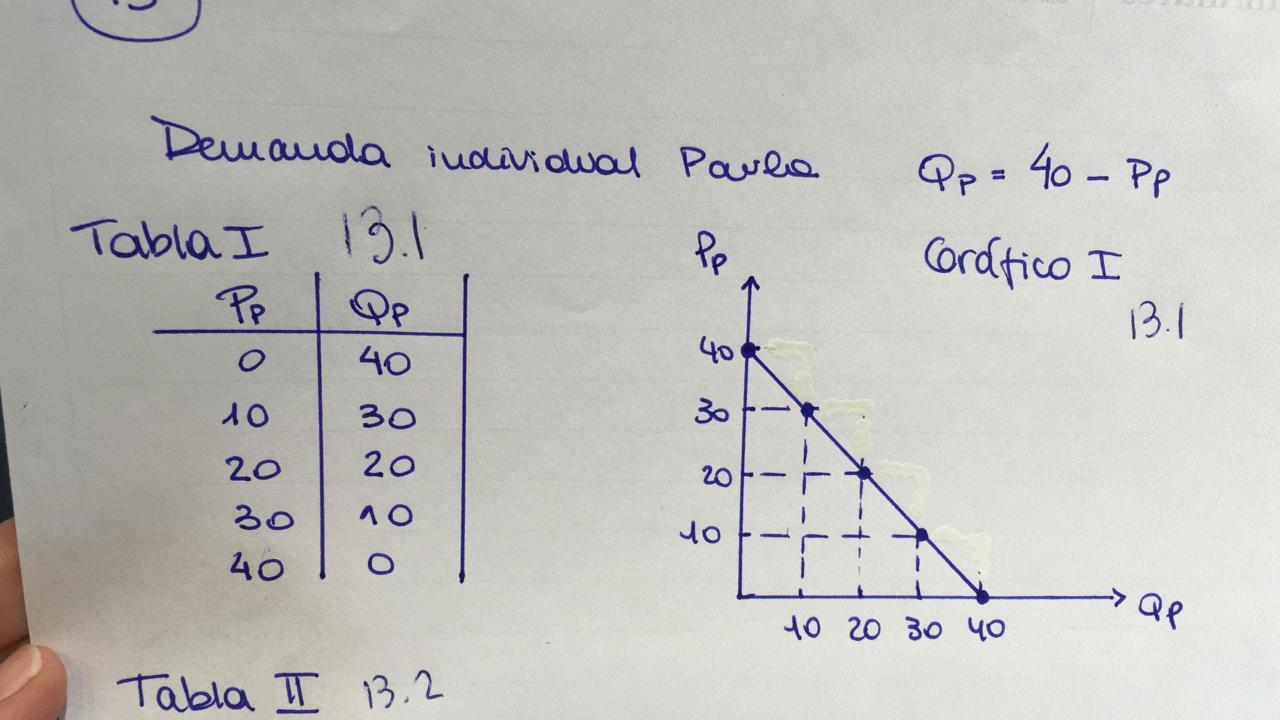 Demanda individual Paula
Qp = 40 - Pp
Tabla I 13.1
Pp Qp
0 40
10 30
20 20
30 10
40 0
Gráfico I
13.1
Pp
40
30
20
10
10 20 30 40 Qp
Tabla II 13.2